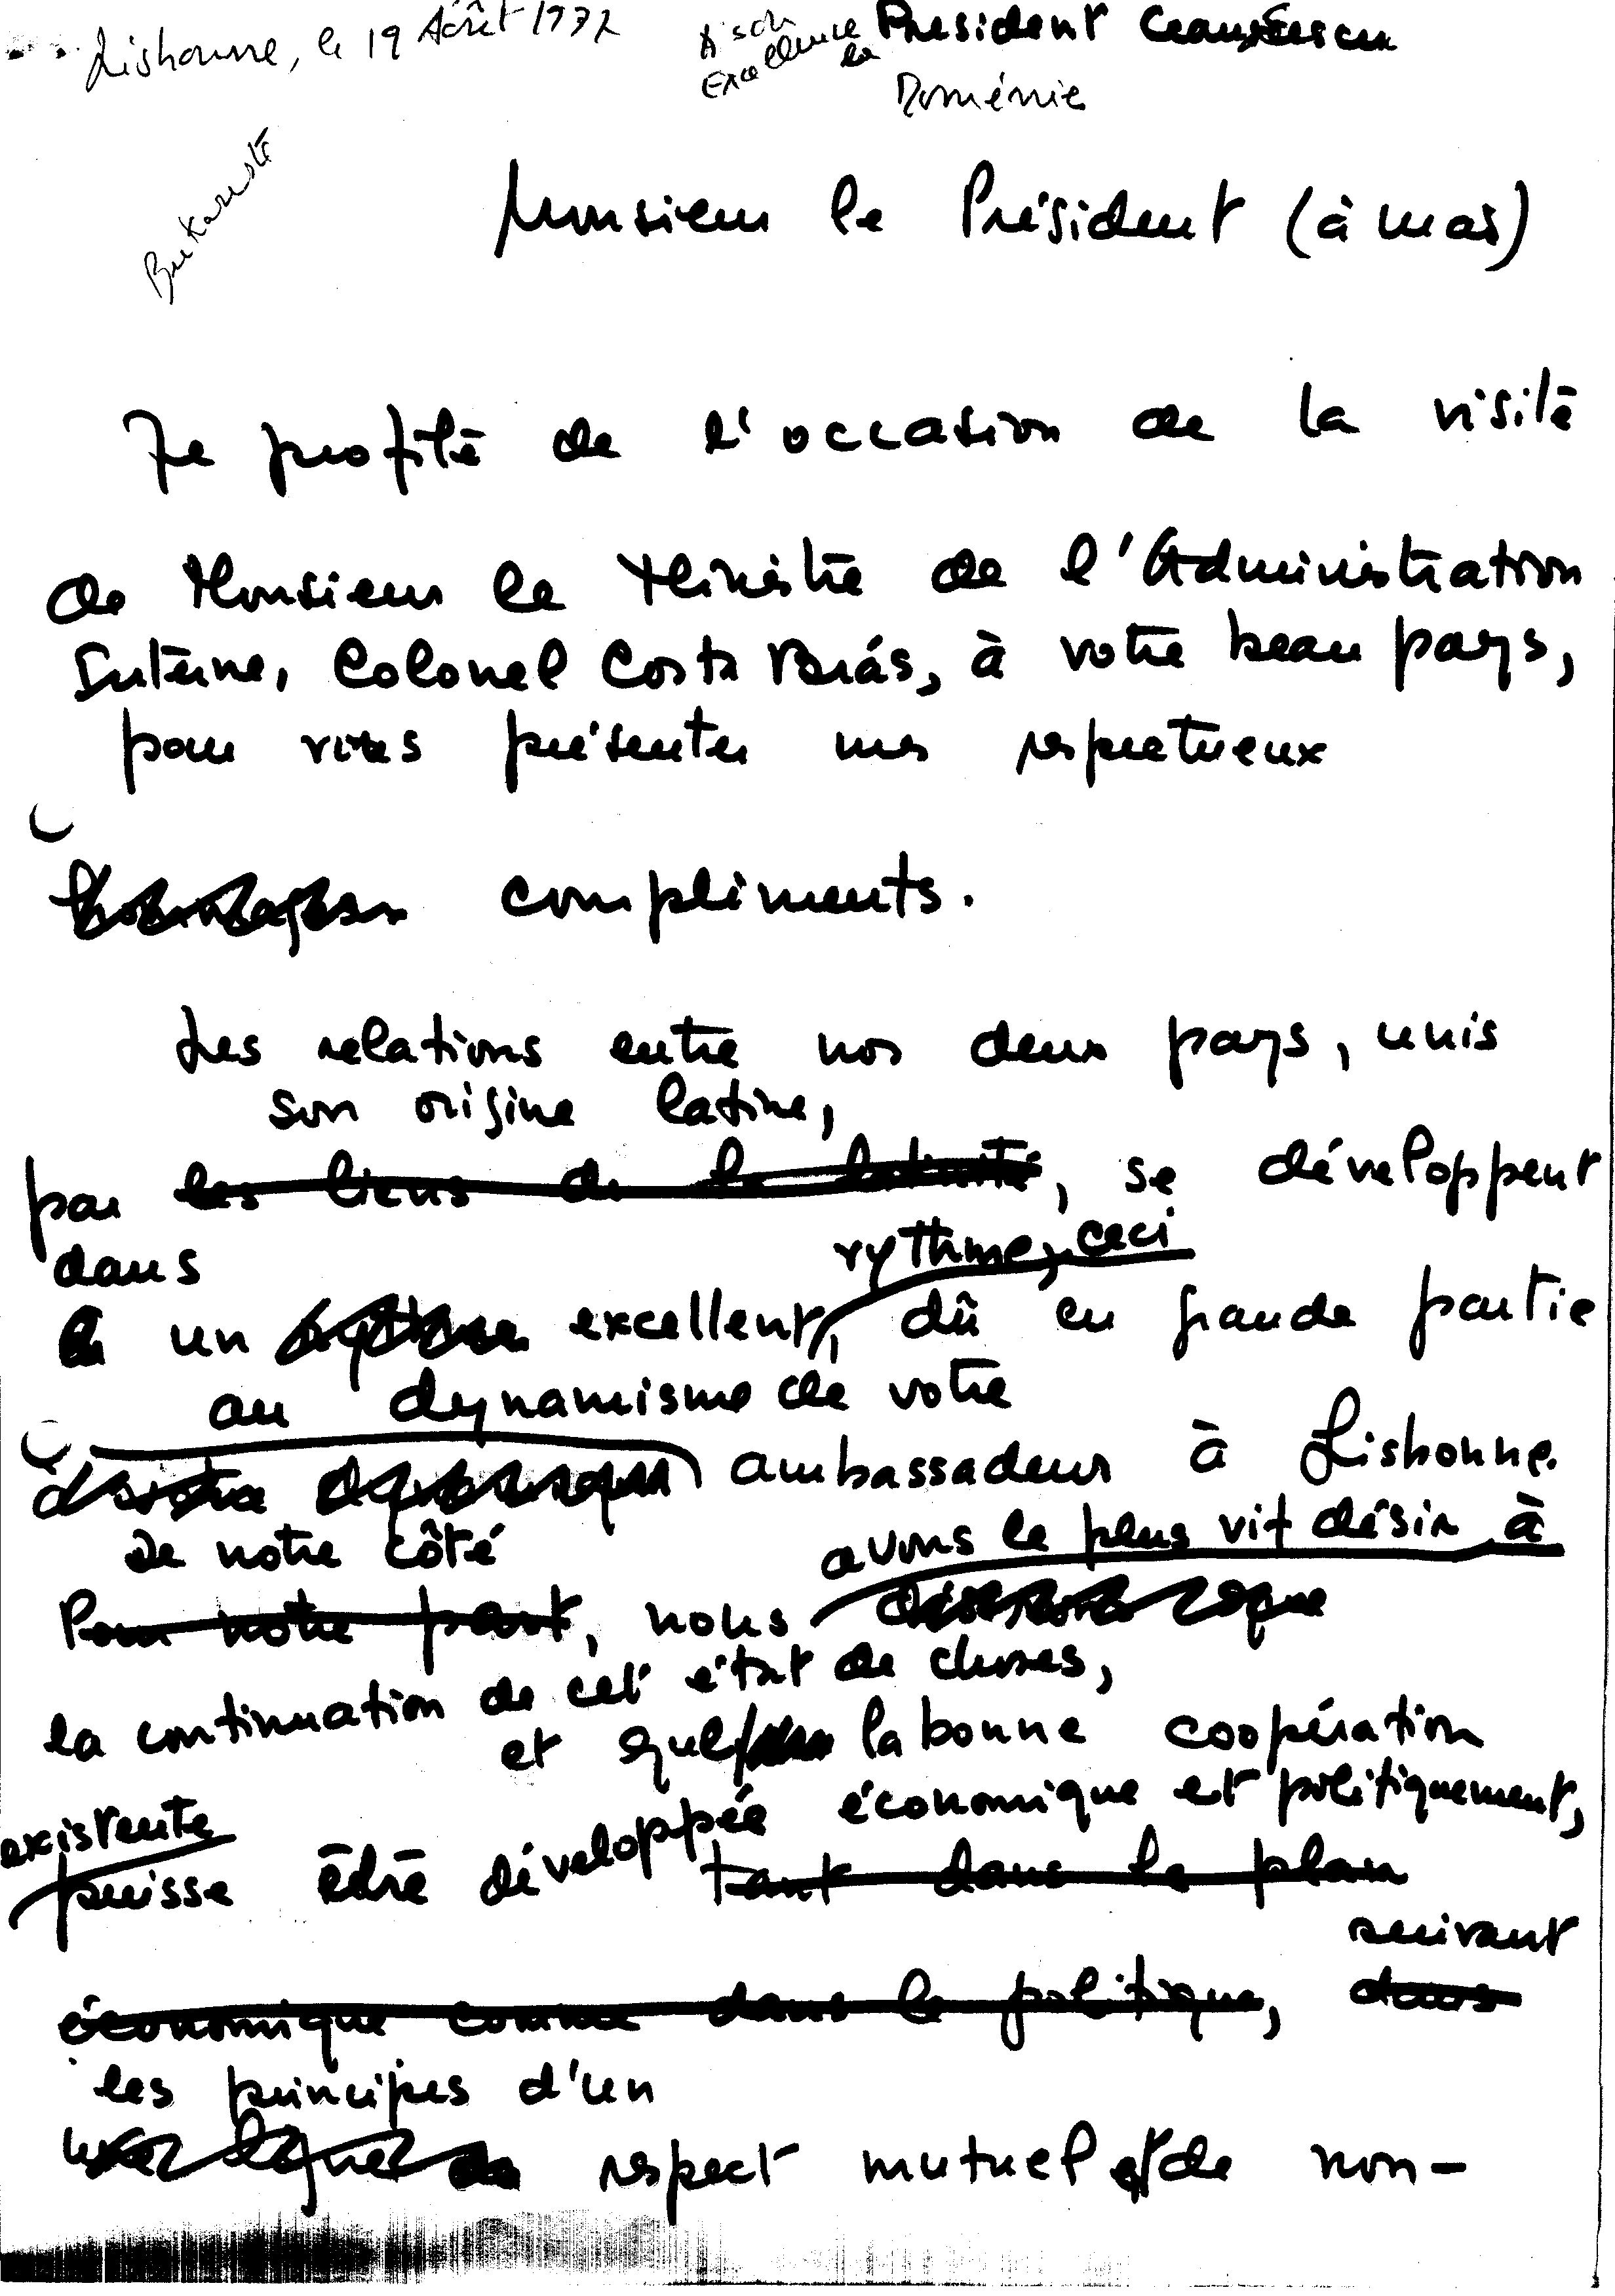 Lisbonne, le 19 Août 1977
A son Excellence le
President Ceausescu
Roménie
Bukareste
Monsieur le Président (à mas)
Je profite de l'occasion de la visite
de Monsieur le Ministre de l'Administration
Interne, Colonel Costa Brás, à votre beau pays,
pour vous présenter mes respectueux
hommages compliments.
Les relations entre nos deux pays, unis
son origine latine,
par les liens de la latinité, se développent
dans
un rythme excellent, rythme, ceci dû en grande partie
au dynamisme de votre
ambassadeur à Lisbonne.
De notre côté
avons le plus vif désir à
Pour notre part, nous que
la continuation de cet état de choses,
et que la bonne coopération
existente
puisse être développée économique et politiquement,
tant dans le plan
suivant
économique comme dans le politique, dans
les principes d'un
respect mutuel et de non-